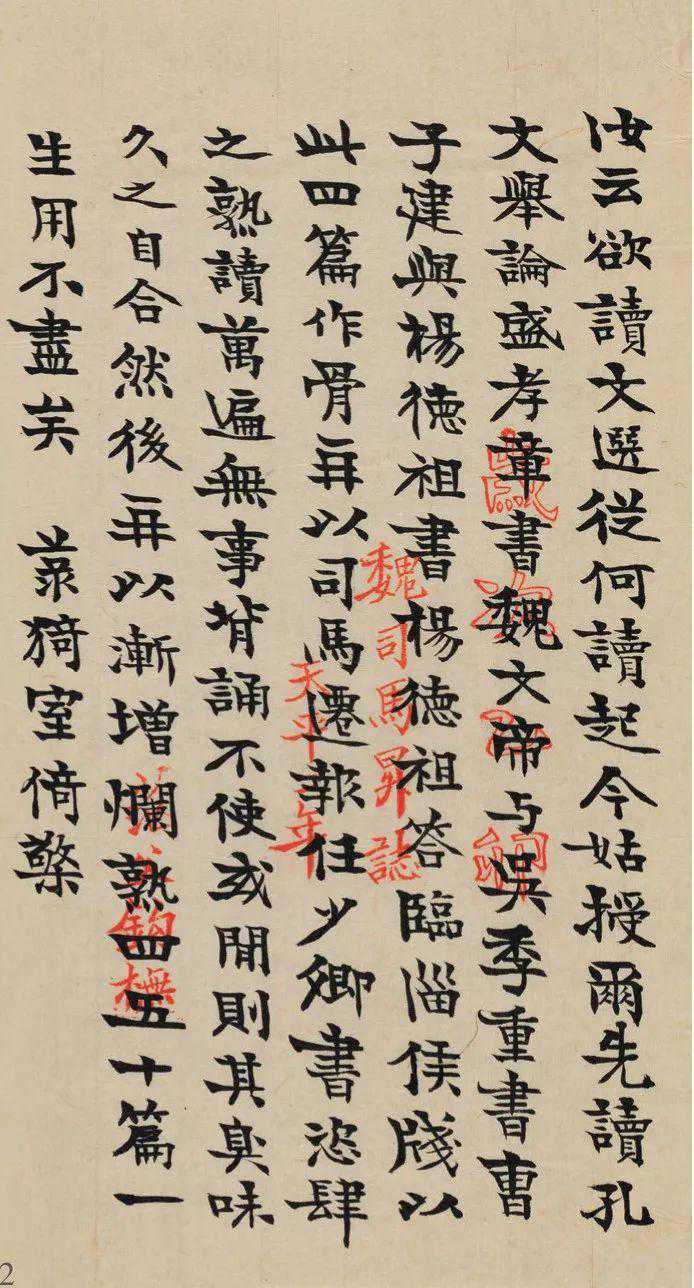 汝云欲讀文選從何讀起今姑授爾先讀孔
文舉論盛孝章書魏文帝与吳季重書曹
子建與楊德祖書楊德祖答臨淄侯牋以
此四篇作骨再以司馬遷報任少卿書恣肆
之熟讀萬遍無事背誦不使或閒則其臭味
久之自合然後再以漸增爛熟四五十篇一
生用不盡矣 菉猗室倚檠
魏司馬昇誌
天平二年
鉤橅
2